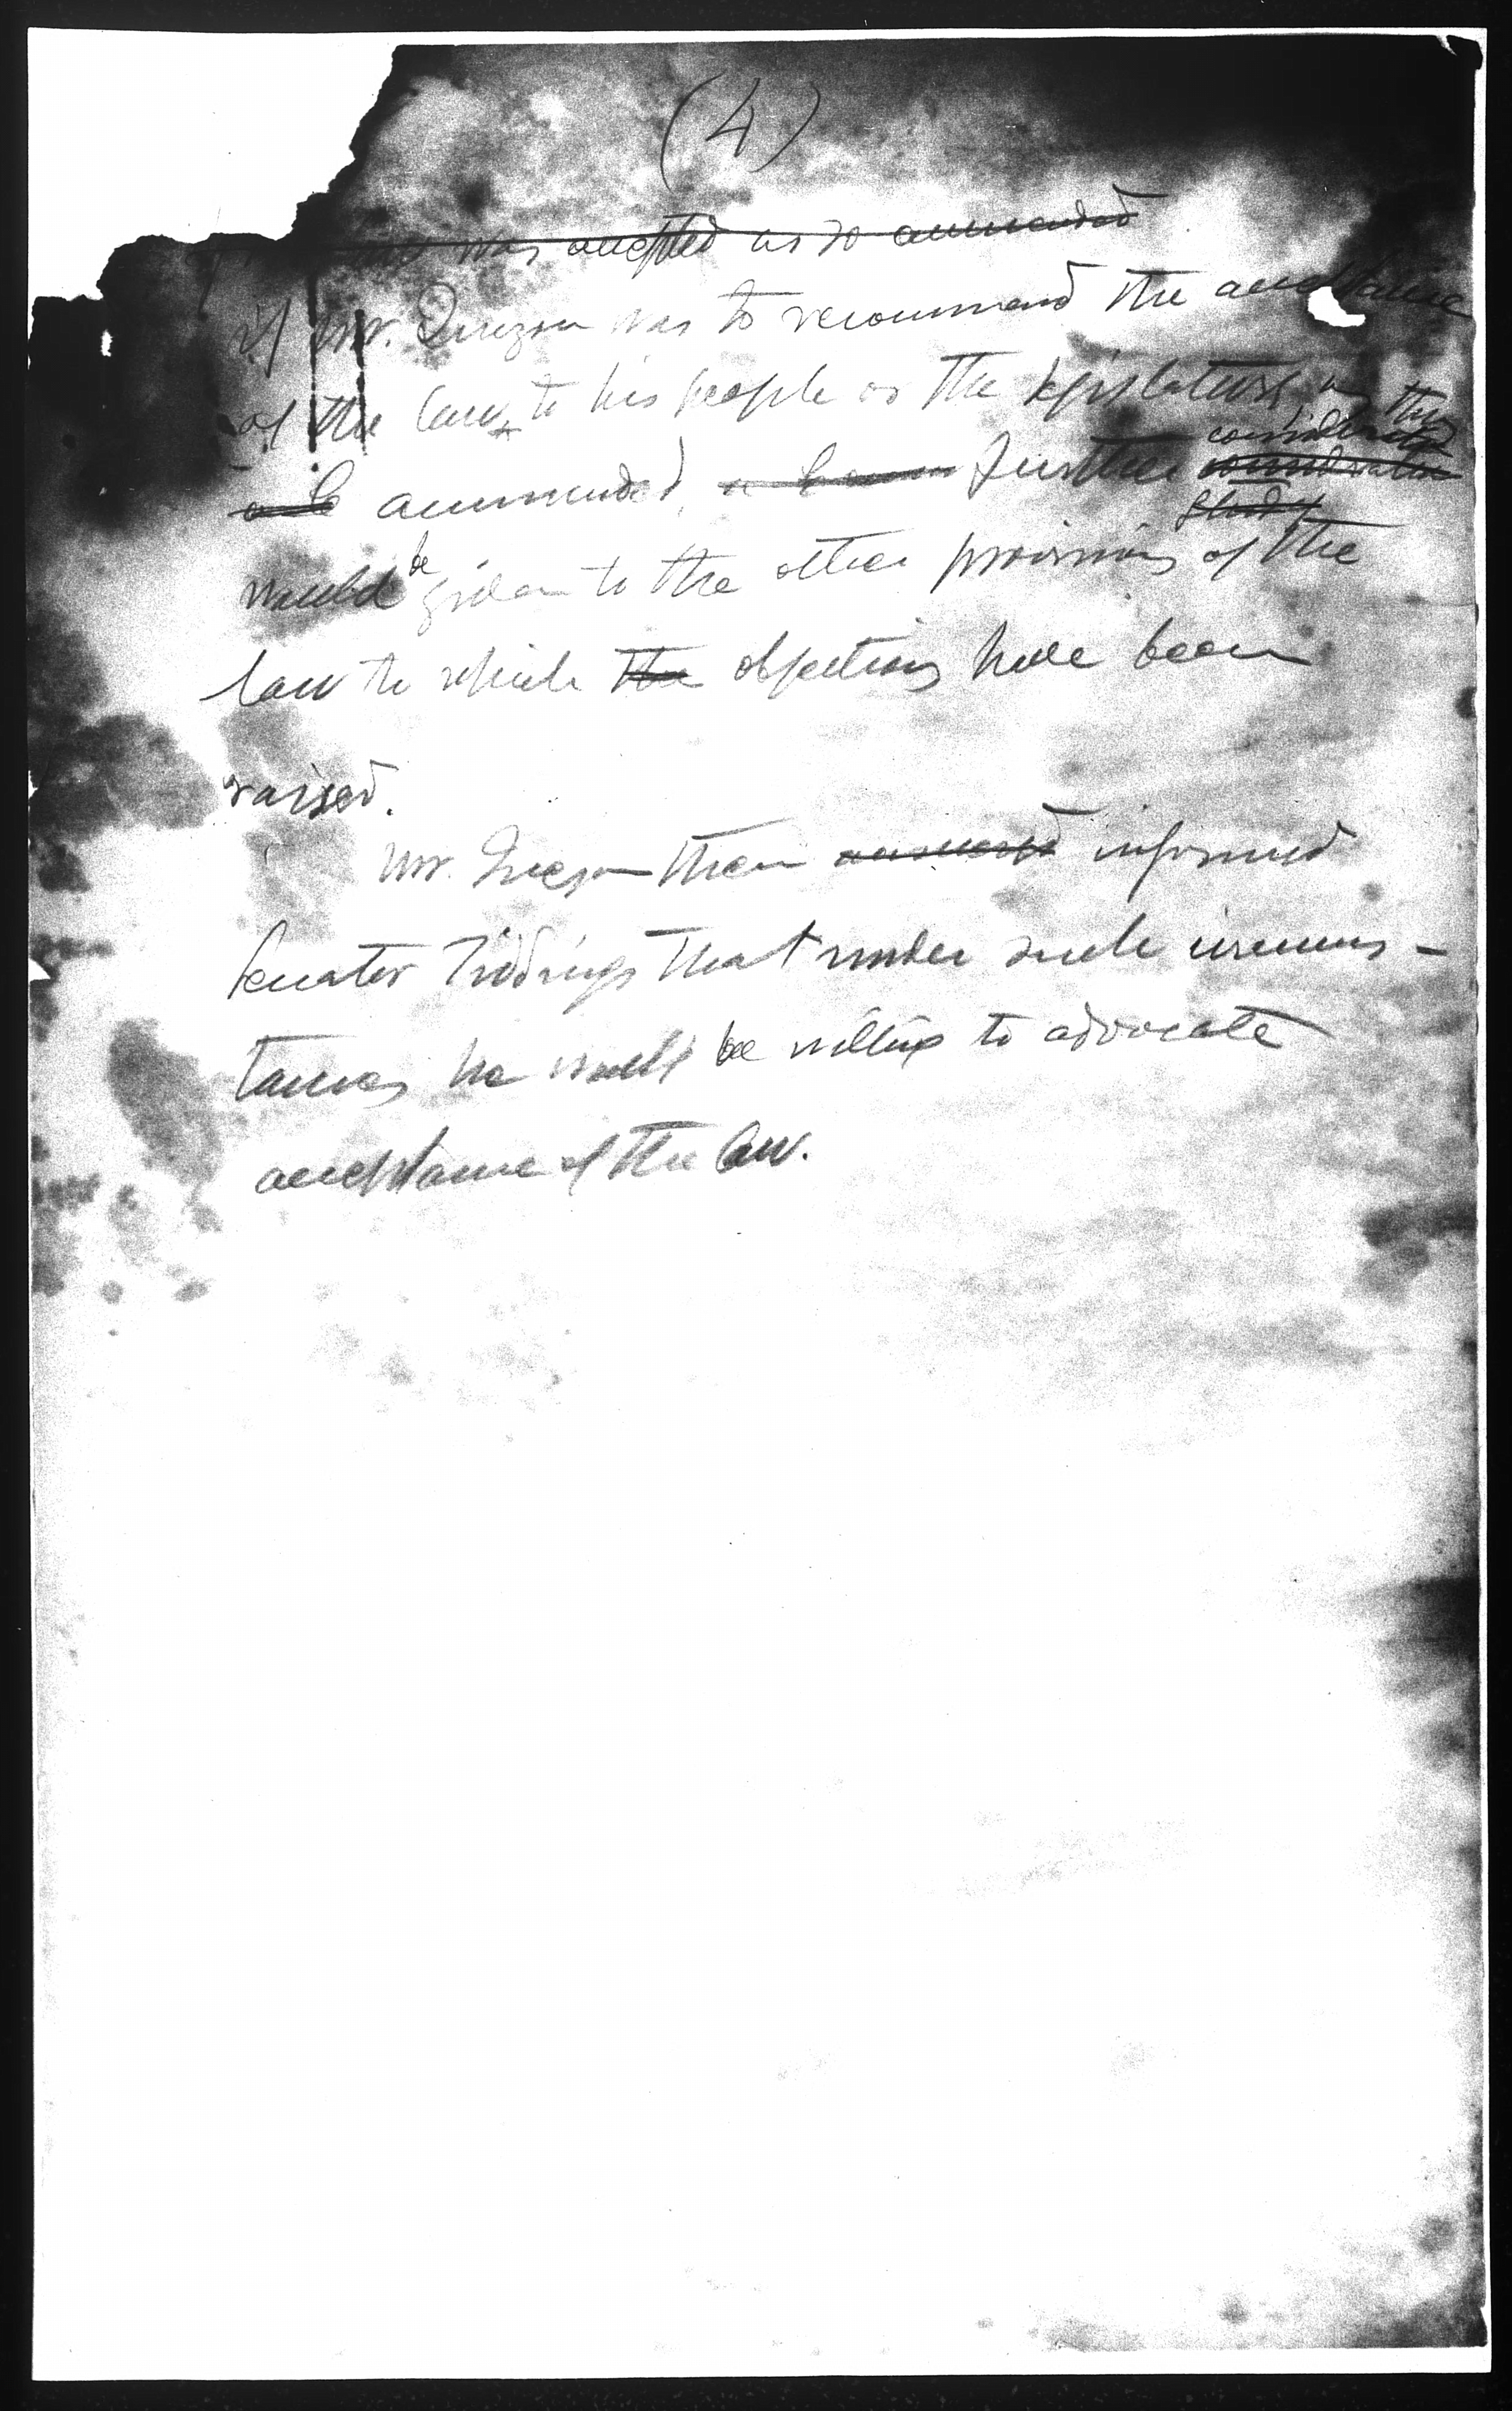 (4)
was accepted as so ammended
if Mr. Quezon was to recommend the acceptance
of the law to his people or the legislature as thus
ammended, further consideration
study
would be given to the other provisions of the
law to which the objections have been
raised.
Mr. Quezon then answered informed
Senator Tidings that under such circums-
tances he would be willing to advocate
acceptance of the law.